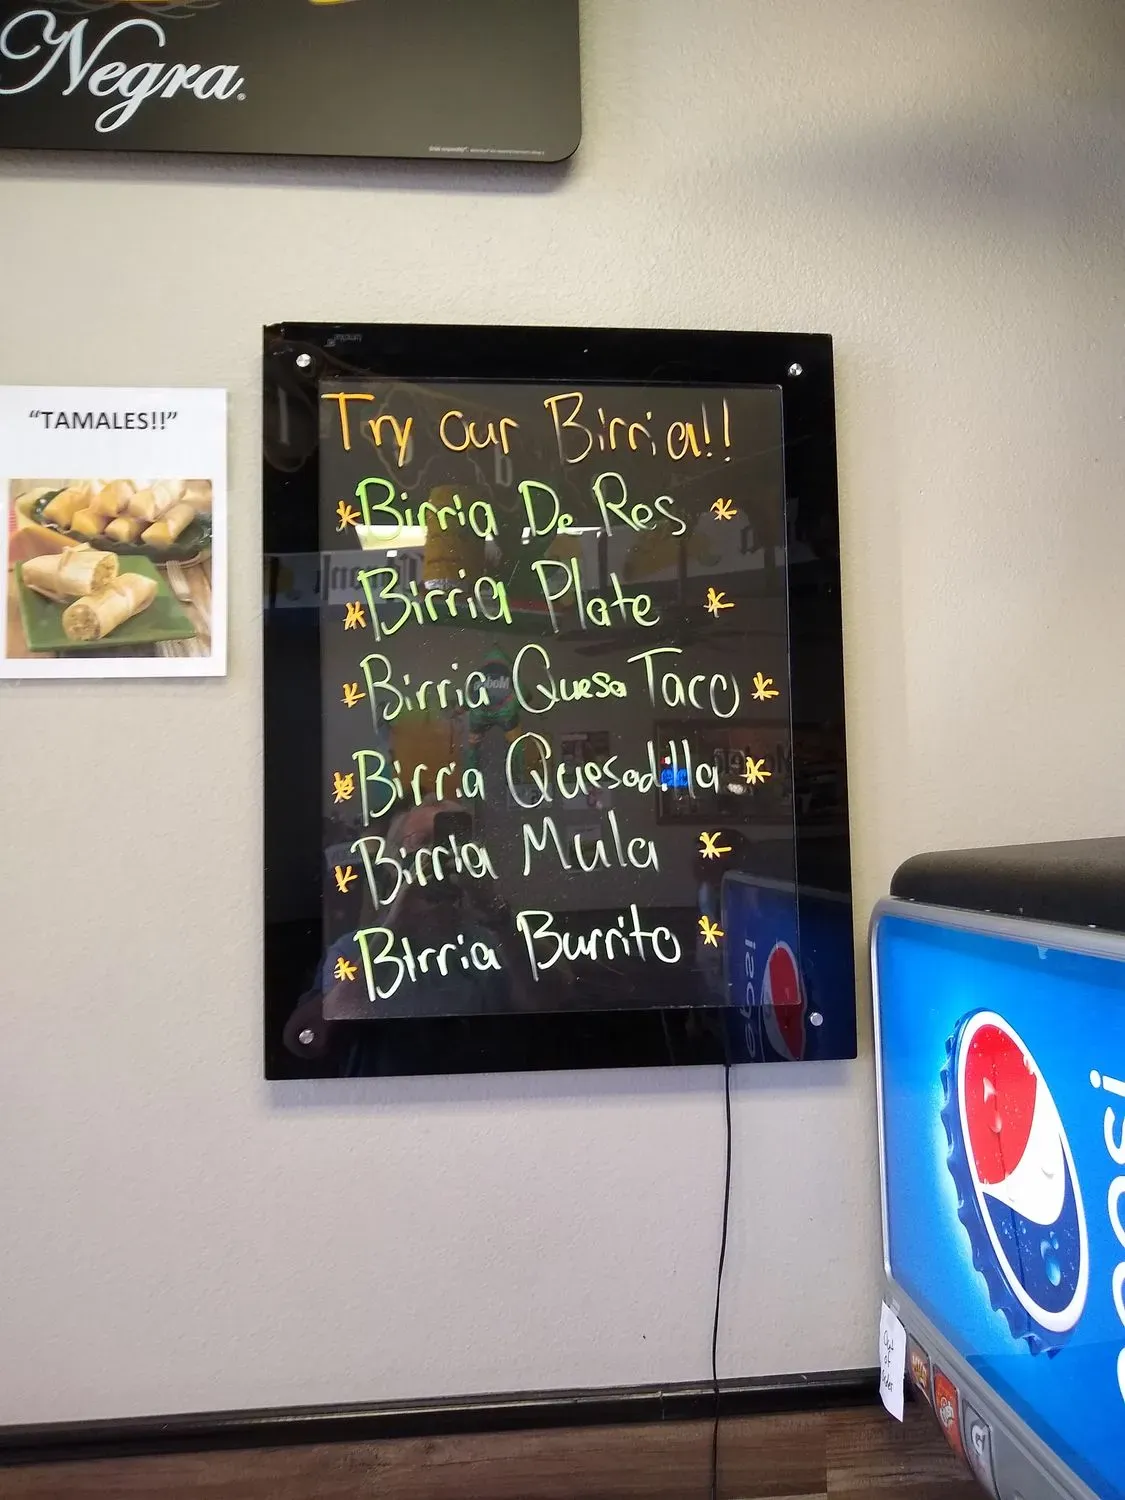 Negra®
"TAMALES!!"
Try our Birria!!
*Birria De Res *
*Birria Plate *
*Birria Quesa Taco *
*Birria Quesadilla *
*Birria Mula *
*Birria Burrito *
pepsi
Out
of
order
G